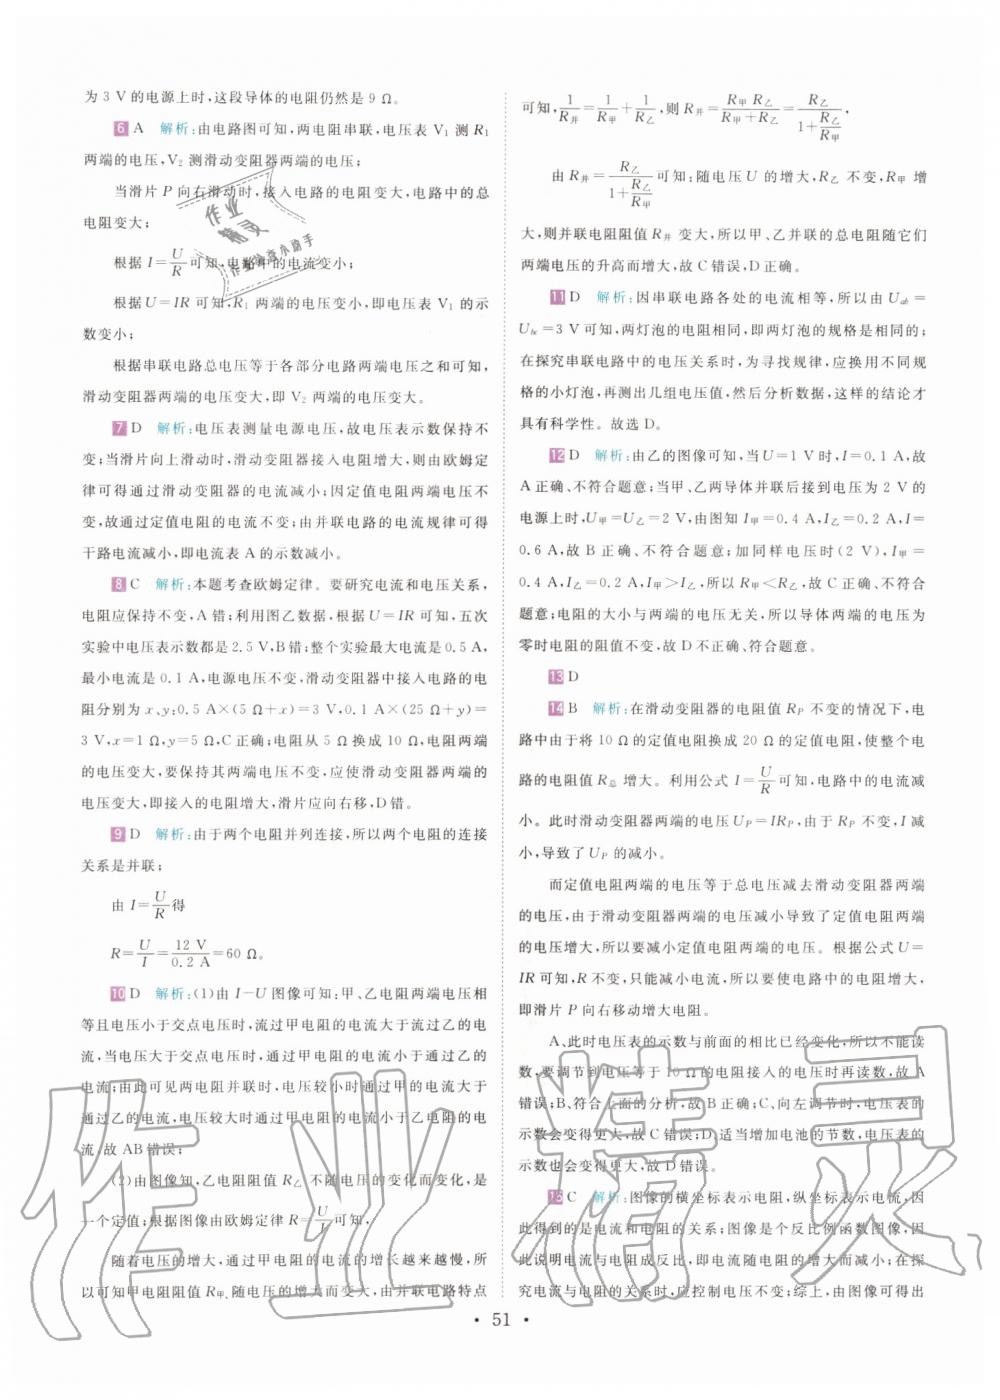 为 3 V 的电源上时,这段导体的电阻仍然是 9 Ω。
6 A 解析:由电路图可知,两电阻串联,电压表 V₁ 测 R₁
两端的电压,V₂ 测滑动变阻器两端的电压;
当滑片 P 向右滑动时,接入电路的电阻变大,电路中的总
电阻变大;
根据 I=U/R 可知,电路中的电流变小;
根据 U=IR 可知,R₁ 两端的电压变小,即电压表 V₁ 的示
数变小;
根据串联电路总电压等于各部分电路两端电压之和可知,
滑动变阻器两端的电压变大,即 V₂ 两端的电压变大。
7 D 解析:电压表测量电源电压,故电压表示数保持不
变;当滑片向上滑动时,滑动变阻器接入电阻增大,则由欧姆定
律可得通过滑动变阻器的电流减小;因定值电阻两端电压不
变,故通过定值电阻的电流不变;由并联电路的电流规律可得
干路电流减小,即电流表 A 的示数减小。
8 C 解析:本题考查欧姆定律。要研究电流和电压关系,
电阻应保持不变,A 错;利用图乙数据,根据 U=IR 可知,五次
实验中电压表示数都是 2.5 V,B 错;整个实验最大电流是 0.5 A,
最小电流是 0.1 A,电源电压不变,滑动变阻器接入电路的电
阻分别为 x、y:0.5 A×(5 Ω+x)=3 V,0.1 A×(25 Ω+y)=
3 V,x=1 Ω,y=5 Ω,C 正确;电阻从 5 Ω 换成 10 Ω,电阻两端
的电压变大,要保持其两端电压不变,应使滑动变阻器两端的
电压变大,即接入的电阻增大,滑片应向右移,D 错。
9 D 解析:由于两个电阻并列连接,所以两个电阻的连接
关系是并联;
由 I=U/R 得
R=U/I=12 V/0.2 A=60 Ω。
10 D 解析:(1)由 I-U 图像可知:甲、乙电阻两端电压相
等且电压小于交点电压时,流过甲电阻的电流大于流过乙的电
流,当电压大于交点电压时,通过甲电阻的电流小于通过乙的
电流;由此可见两电阻并联时,电压较小时通过甲的电流大于
通过乙的电流,电压较大时通过甲电阻的电流小于乙电阻的电
流,故 AB 错误;
(2)由图像知,乙电阻阻值 R乙 不随电压的变化而变化,是
一个定值;根据图像由欧姆定律 R=U/I 可知,
随着电压的增大,通过甲电阻的电流的增长越来越慢,所
以可知甲电阻阻值 R甲,随电压的增大而变大,由并联电路特点
可知,1/R并=1/R甲+1/R乙,则 R并=R甲R乙/(R甲+R乙)=R乙/(1+R乙/R甲),
由 R并=R乙/(1+R乙/R甲)可知:随电压 U 的增大,R乙 不变,R甲 增
大,则并联电阻阻值 R并 变大,所以甲、乙并联的总电阻随它们
两端电压的升高而增大,故 C 错误,D 正确。
11 D 解析:因串联电路各处的电流相等,所以由 Uab=
Ubc=3 V 可知,两灯泡的电阻相同,即两灯泡的规格是相同的;
在探究串联电路中的电压关系时,为寻找规律,应换用不同规
格的小灯泡,再测出几组电压值,然后分析数据,这样的结论才
具有科学性。故选 D。
12 D 解析:由乙的图像可知,当 U=1 V时,I=0.1 A,故
A 正确、不符合题意;当甲、乙两导体并联后接到电压为 2 V 的
电源上时,U甲=U乙=2 V,由图知 I甲=0.4 A,I乙=0.2 A,I=
0.6 A,故 B 正确、不符合题意;加同样电压时(2 V),I甲=
0.4 A,I乙=0.2 A,I甲>I乙,所以 R甲<R乙,故 C 正确、不符合
题意;电阻的大小与两端的电压无关,所以导体两端的电压为
零时电阻的阻值不变,故 D 不正确、符合题意。
13 D
14 B 解析:在滑动变阻器的电阻值 RP 不变的情况下,电
路中由于将 10 Ω 的定值电阻换成 20 Ω 的定值电阻,使整个电
路的电阻值 R总 增大。利用公式 I=U/R 可知,电路中的电流减
小。此时滑动变阻器两端的电压 UP=IRP,由于 RP 不变,I 减
小,导致了 UP 的减小。
而定值电阻两端的电压等于总电压减去滑动变阻器两端
的电压,由于滑动变阻器两端的电压减小导致了定值电阻两端
的电压增大,所以要减小定值电阻两端的电压。根据公式 U=
IR 可知,R 不变,只能减小电流,所以要使电路中的电阻增大,
即滑片 P 向右移动增大电阻。
A、此时电压表的示数与前面的相比已经变化,所以不能读
数,要调节到电压等于 10 Ω 的电阻的电压时再读数,故 A
错误;B、符合上面的分析,故 B 正确;C、向左调节时,电压表的
示数会变得更大,故 C 错误;D、适当增加电池的节数,电压表的
示数也会变得更大,故 D 错误。
15 C 解析:图像的横坐标表示电阻,纵坐标表示电流,因
此得到的是电流和电阻的关系;图像是个反比例函数图像,因
此说明电流与电阻成反比,即电流随电阻的增大而减小;在探
究电流与电阻的关系时,应控制电压不变;综上,由图像可得出
• 51 •
作业精灵